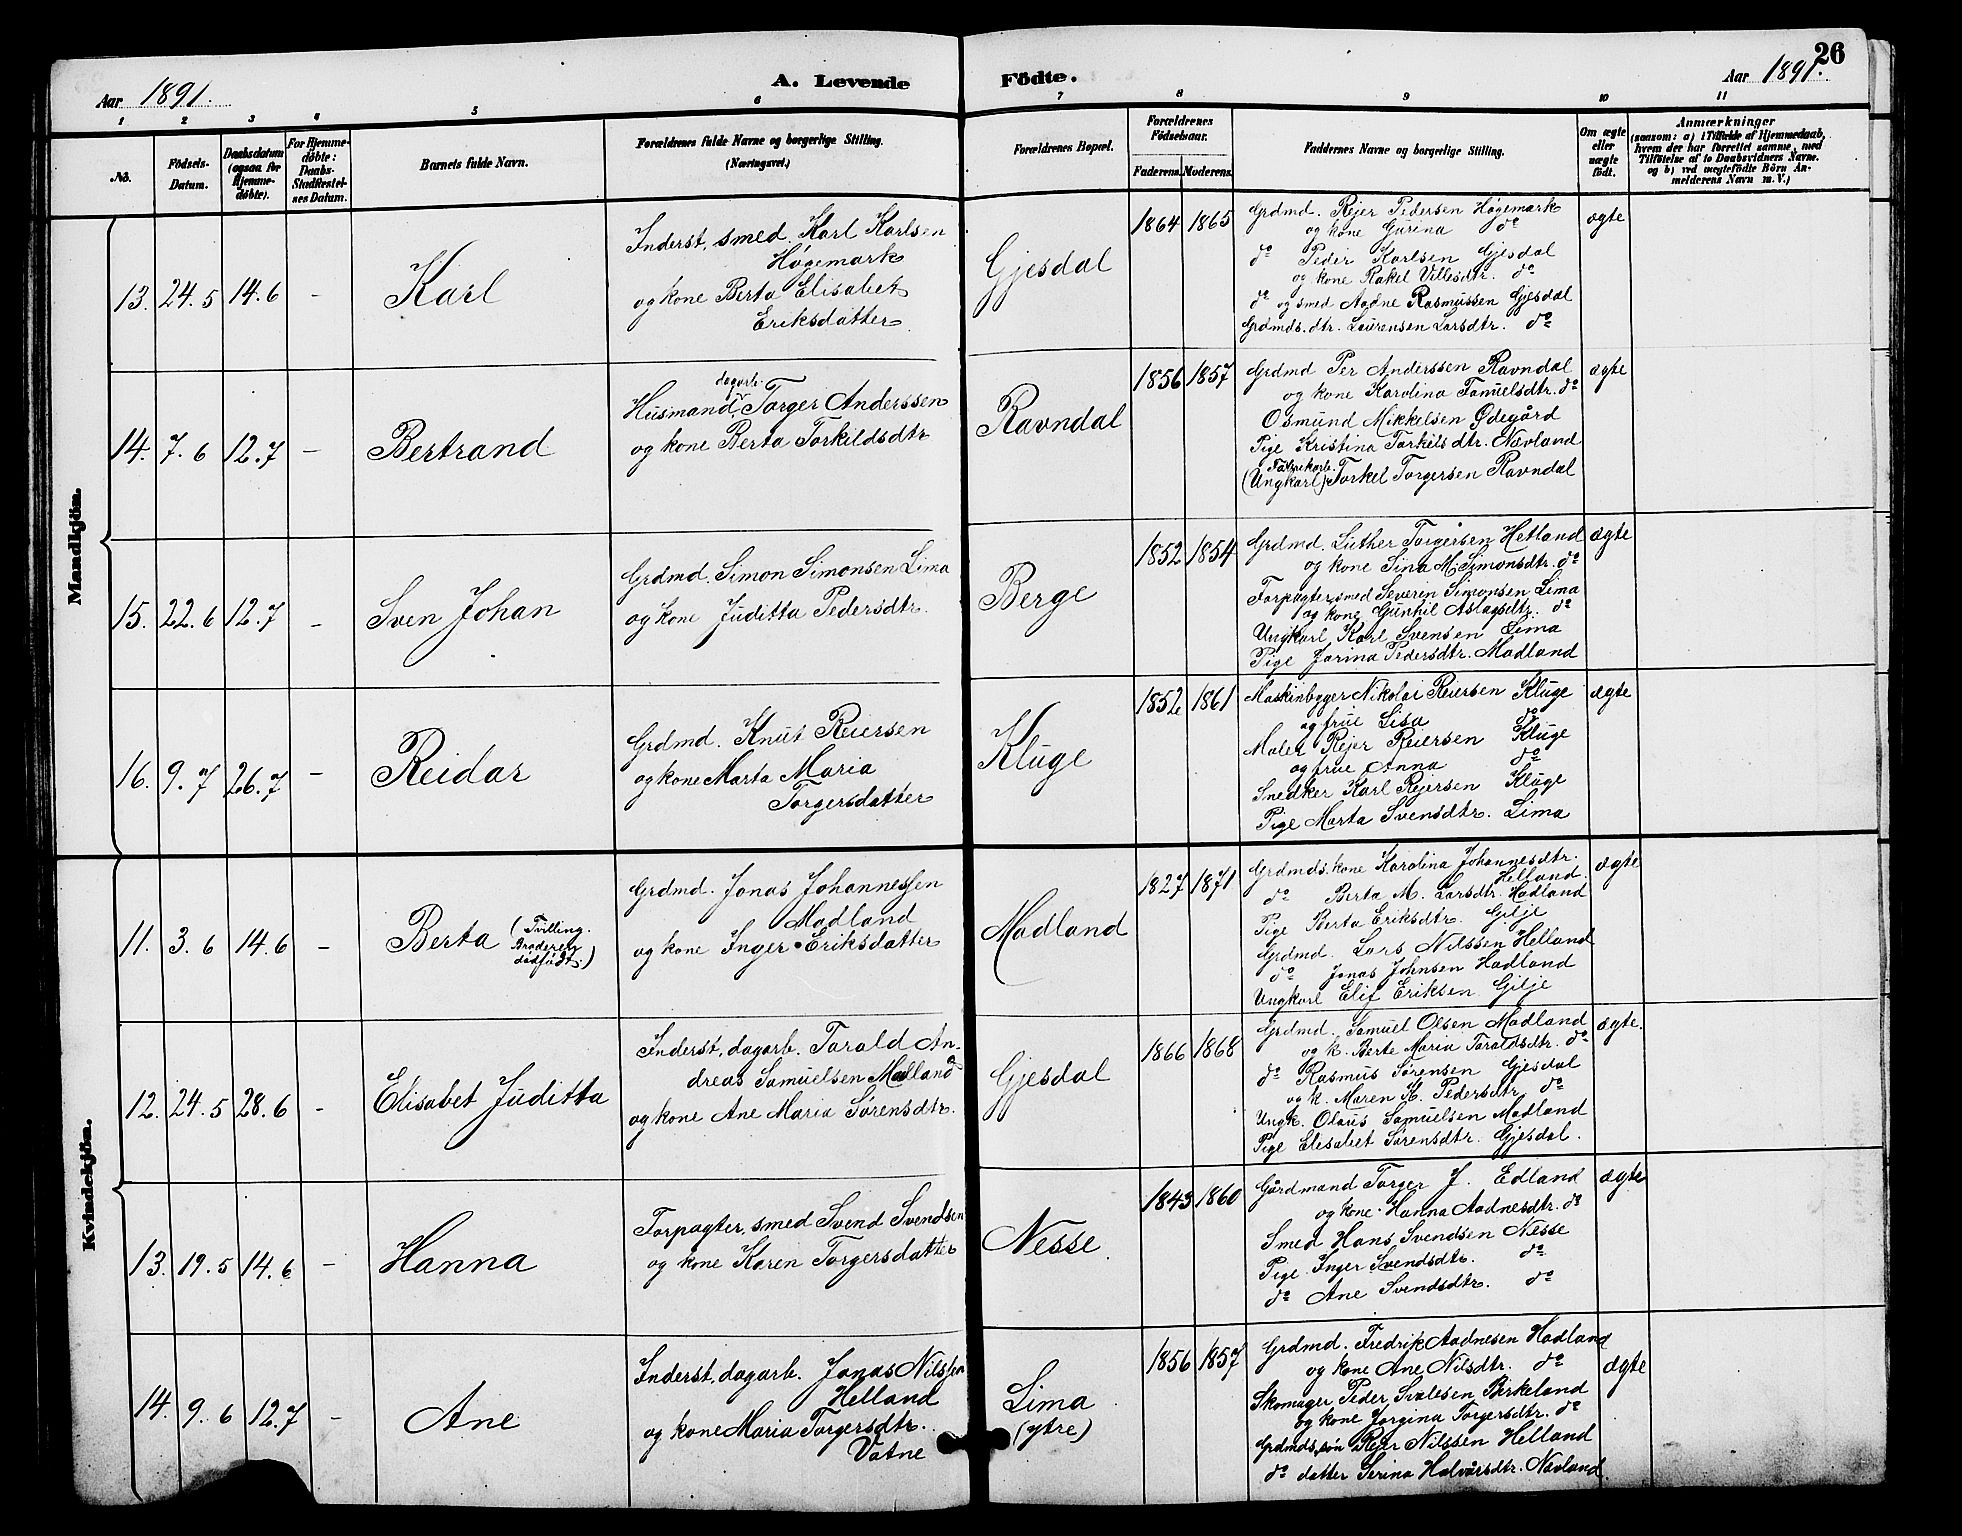 26
Aar 1891.
A. Levende Födte.
Aar 1891.
1 2 3 4 5 6 7 8 9 10 11
No.
Födsels-Datum.
Daabsdatum (ogsaa for Hjemme-døbte).
For Hjemme-døbte: Daabs-Stadfæstelses Datum.
Barnets fulde Navn.
Forældrenes fulde Navne og borgerlige Stilling. (Næringsvei.)
Forældrenes Bopæl.
Forældrenes Födselsaar.
Faderens. Moderens.
Faddernes Navne og borgerlige Stilling.
Om ægte eller uægte født.
Anmærkninger
(saasom: a) i Tilfælde af Hjemmedaab, hvem der har forrettet samme, med Tilföielse af to Daabsvidners Navne. og b) ved uægtefödte Börn Anmelderens Navn m. V.)
Mandkjön.
13. 24.5 14.6 - Karl
Inderst, smed. Karl Karlsen
Høgemark
og kone Berta Elisabet
Eriksdatter
Gjesdal
1864 1865
Grdmd. Rejer Pedersen Høgemark
og kone Gurina do
do Peder Karlsen Gjesdal
og kone Rakel Villesdtr. do
do og smed Aadne Rasmussen Gjesdal
Grdmds. dtr. Laurensen Larsdtr. do
ægte
14. 7.6 12.7 - Bertrand
Husmand, dagarb. Torger Anderssen
og kone Berta Torkildsdtr
Ravndal
1856 1857
Grdmd Per Anderssen Ravndal
og kone Karolina Samuelsdtr. do
Osmund Mikkelsen Ødegård
Pige Kristina Torkelsdtr. Nævland
Fabrikarb.
(Ungkarl) Torkel Torgersen Ravndal
ægte
15. 22.6 12.7 - Sven Johan
Grdmd. Simon Simonsen Lima
og kone Juditta Pedersdtr.
Berge
1852 1854
Grdmd. Luther Torgersen Hetland
og kone Sina M. Simonsdtr. do
Forpagter, smed Severen Simonsen Lima
og kone Gunhil Aslagsdtr. do
Ungkarl Karl Svensen Lima
Pige Jorina Pedersdtr. Madland
ægte
16. 9.7 26.7 - Reidar
Grdmd. Knut Reiersen
og kone Marta Maria
Torgersdatter
Kluge
1852 1861
Maskinbygger Nikolai Reiersen Kluge
og frue Lisa do
Maler Rejer Reiersen Kluge
og frue Anna do
Snedker Karl Rejersen Kluge
Pige Marta Svensdtr. Lima
ægte
Kvindekjön.
11. 3.6 14.6 - Berta (Tvilling. Broderen dødfødt.)
Grdmd. Jonas Johannessen
Madland
og kone Inger Eriksdatter
Madland
1827 1871
Grdmds. kone Karolina Johannesdtr.
Helland.
do Berta M. Larsdtr. Hadland
Pige Berta Eriksdtr. Gilje
Grdmd. Lars Nilssen Helland
do Jonas Johnsen Hadland
Ungkarl Elif Eriksen Gilje
ægte
12. 24.5 28.6 - Elisabet Juditta
Inderst, dagarb. Torald An-
dreas Samuelsen Madland
og kone Ane Maria Sørensdtr.
Gjesdal
1866 1868
Grdmd. Samuel Olsen Madland
og k. Berte Maria Toraldsdtr. do
do Rasmus Sørensen Gjesdal
og k. Maren K. Pedersdtr. do
Ungk. Olaus Samuelsen Madland
Pige Elisabet Sørensdtr. Gjesdal.
ægte.
13. 19.5 14.6 - Hanna
Forpagter, smed Svend Svendsen
og kone Karen Torgersdatter
Nesse.
1843 1860
Gårdmand Torger J. Edland
og kone Hanna Aadnesdtr. do
Smed Hans Svendsen Nesse
Pige Inger Svendsdtr. do
do Ane Svendsdtr. do
ægte
14. 9.6 12.7 - Ane
Inderst, dagarb. Jonas Nilssen
Helland
og kone Maria Torgersdtr.
Vatne
Lima
(ytre)
1856 1857
Grdmd. Fredrik Aadnesen Hadland
og kone Ane Nilsdtr. do
Skomager Peder Svalesen Birkeland
og kone Jorgina Torgersdtr. do
Grdmds. søn Rejer Nilssen Helland
do datter Serina Halvårsdtr. Nævland
ægte